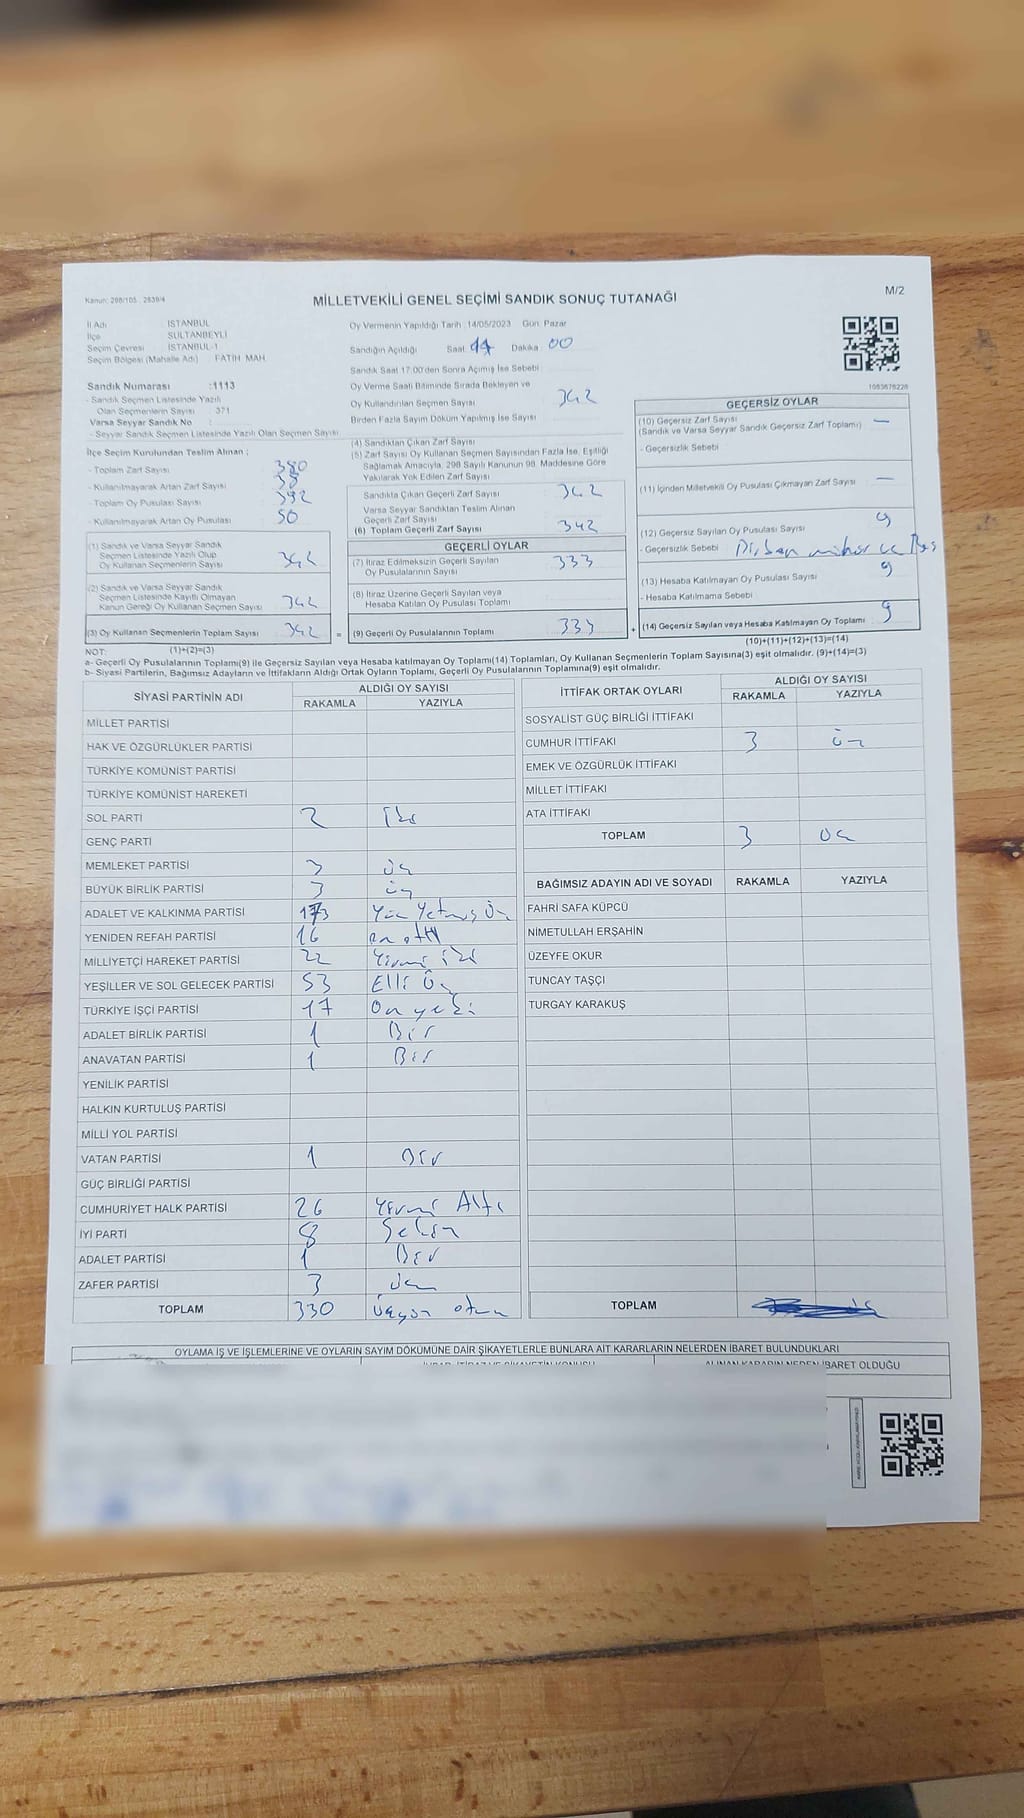 Kanun: 298/105 , 2839/4
M/2
MİLLETVEKİLİ GENEL SEÇİMİ SANDIK SONUÇ TUTANAĞI
İl Adı : İSTANBUL
İlçe : SULTANBEYLİ
Seçim Çevresi : İSTANBUL-1
Seçim Bölgesi (Mahalle Adı) : FATİH MAH.
Oy Vermenin Yapıldığı Tarih :14/05/2023 Gün: Pazar
Sandığın Açıldığı Saat: Dakika: 00
Sandık Saat 17:00'den Sonra Açılmış İse Sebebi:
Oy Verme Saati Bitiminde Sırada Bekleyen ve
Oy Kullandırılan Seçmen Sayısı : 342
Birden Fazla Sayım Döküm Yapılmış İse Sayısı :
Sandık Numarası :1113
- Sandık Seçmen Listesinde Yazılı
Olan Seçmenlerin Sayısı : 371
Varsa Seyyar Sandık No :
- Seyyar Sandık Seçmen Listesinde Yazılı Olan Seçmen Sayısı:
İlçe Seçim Kurulundan Teslim Alınan ;
- Toplam Zarf Sayısı : 380
- Kullanılmayarak Artan Zarf Sayısı : 38
- Toplam Oy Pusulası Sayısı : 392
- Kullanılmayarak Artan Oy Pusulası : 50
(1) Sandık ve Varsa Seyyar Sandık
Seçmen Listesinde Yazılı Olup
Oy Kullanan Seçmenlerin Sayısı : 342
(2) Sandık ve Varsa Seyyar Sandık
Seçmen Listesinde Kayıtlı Olmayan
Kanun Gereği Oy Kullanan Seçmen Sayısı : 342
(3) Oy Kullanan Seçmenlerin Toplam Sayısı : 342 =
(1)+(2)=(3)
(4) Sandıktan Çıkan Zarf Sayısı :
(5) Zarf Sayısı Oy Kullanan Seçmen Sayısından Fazla İse, Eşitliği
Sağlamak Amacıyla, 298 Sayılı Kanunun 98. Maddesine Göre
Yakılarak Yok Edilen Zarf Sayısı :
Sandıkta Çıkan Geçerli Zarf Sayısı : 342
Varsa Seyyar Sandıktan Teslim Alınan
Geçerli Zarf Sayısı :
(6) Toplam Geçerli Zarf Sayısı : 342
GEÇERLİ OYLAR
(7) İtiraz Edilmeksizin Geçerli Sayılan
Oy Pusulalarının Sayısı : 333
(8) İtiraz Üzerine Geçerli Sayılan veya
Hesaba Katılan Oy Pusulası Toplamı :
(9) Geçerli Oy Pusulalarının Toplamı : 333 +
1083678228
GEÇERSİZ OYLAR
(10) Geçersiz Zarf Sayısı : —
(Sandık ve Varsa Seyyar Sandık Geçersiz Zarf Toplamı)
- Geçersizlik Sebebi :
(11) İçinden Milletvekili Oy Pusulası Çıkmayan Zarf Sayısı : —
(12) Geçersiz Sayılan Oy Pusulası Sayısı : 9
- Geçersizlik Sebebi :
(13) Hesaba Katılmayan Oy Pusulası Sayısı : 9
- Hesaba Katılmama Sebebi :
(14) Geçersiz Sayılan veya Hesaba Katılmayan Oy Toplamı : 9
(10)+(11)+(12)+(13)=(14)
NOT:
a- Geçerli Oy Pusulalarının Toplamı(9) ile Geçersiz Sayılan veya Hesaba katılmayan Oy Toplamı(14) Toplamları, Oy Kullanan Seçmenlerin Toplam Sayısına(3) eşit olmalıdır. (9)+(14)=(3)
b- Siyasi Partilerin, Bağımsız Adayların ve İttifakların Aldığı Ortak Oyların Toplamı, Geçerli Oy Pusulalarının Toplamına(9) eşit olmalıdır.
SİYASİ PARTİNİN ADI ALDIĞI OY SAYISI
RAKAMLA YAZIYLA
MİLLET PARTİSİ
HAK VE ÖZGÜRLÜKLER PARTİSİ
TÜRKİYE KOMÜNİST PARTİSİ
TÜRKİYE KOMÜNİST HAREKETİ
SOL PARTİ 2 İki
GENÇ PARTİ
MEMLEKET PARTİSİ 3 üç
BÜYÜK BİRLİK PARTİSİ 3 üç
ADALET VE KALKINMA PARTİSİ 173 Yüz Yetmiş Üç
YENİDEN REFAH PARTİSİ 16 on altı
MİLLİYETÇİ HAREKET PARTİSİ 22 Yirmi iki
YEŞİLLER VE SOL GELECEK PARTİSİ 53 Elli Üç
TÜRKİYE İŞÇİ PARTİSİ 17 On yedi
ADALET BİRLİK PARTİSİ 1 Bir
ANAVATAN PARTİSİ 1 Bir
YENİLİK PARTİSİ
HALKIN KURTULUŞ PARTİSİ
MİLLİ YOL PARTİSİ
VATAN PARTİSİ 1 Bir
GÜÇ BİRLİĞİ PARTİSİ
CUMHURİYET HALK PARTİSİ 26 Yirmi Altı
İYİ PARTİ 8 Sekiz
ADALET PARTİSİ 1 Bir
ZAFER PARTİSİ 3 üç
TOPLAM 330 üçyüz otuz
İTTİFAK ORTAK OYLARI ALDIĞI OY SAYISI
RAKAMLA YAZIYLA
SOSYALİST GÜÇ BİRLİĞİ İTTİFAKI
CUMHUR İTTİFAKI 3 üç
EMEK VE ÖZGÜRLÜK İTTİFAKI
MİLLET İTTİFAKI
ATA İTTİFAKI
TOPLAM 3 üç
BAĞIMSIZ ADAYIN ADI VE SOYADI RAKAMLA YAZIYLA
FAHRİ SAFA KÜPCÜ
NİMETULLAH ERŞAHİN
ÜZEYFE OKUR
TUNCAY TAŞÇI
TURGAY KARAKUŞ
TOPLAM
OYLAMA İŞ VE İŞLEMLERİNE VE OYLARIN SAYIM DÖKÜMÜNE DAİR ŞİKAYETLERLE BUNLARA AİT KARARLARIN NELERDEN İBARET BULUNDUKLARI
ALINAN KARARIN NEDEN İBARET OLDUĞU